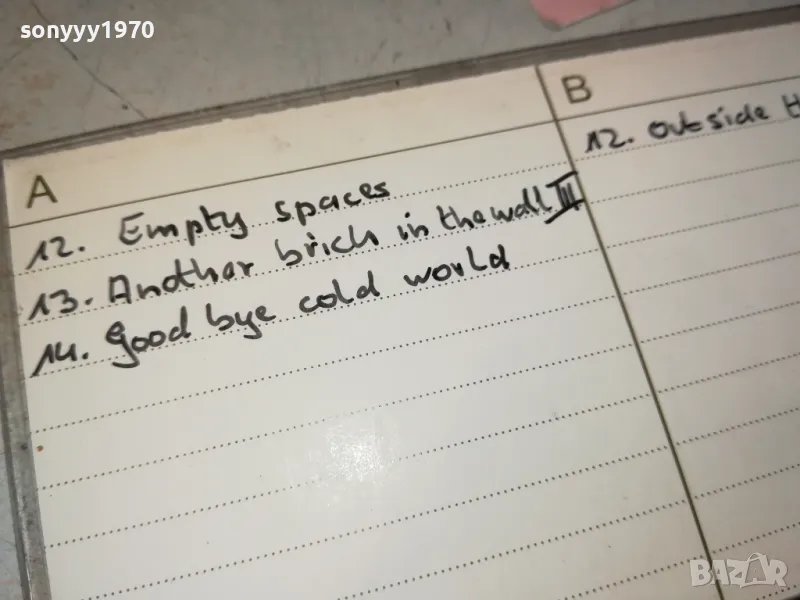 sonyyy1970
A
12. Empty spaces
13. Another brick in the wall III
14. Good bye cold world
B
12. outside
BAZAR